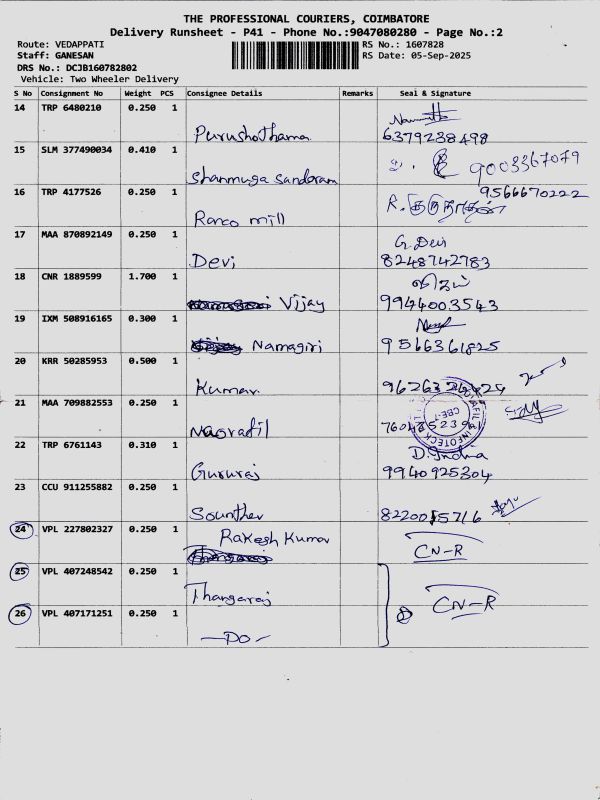 THE PROFESSIONAL COURIERS, COIMBATORE
Delivery Runsheet - P41 - Phone No.:9047080280 - Page No.:2
Route: VEDAPPATI RS No.: 1607828
Staff: GANESAN RS Date: 05-Sep-2025
DRS No.: DCJB160782802
Vehicle: Two Wheeler Delivery
S No Consignment No Weight PCS Consignee Details Remarks Seal & Signature
14 TRP 6480210 0.250 1
Purushothama 6379238498
15 SLM 377490034 0.410 1
9003367079
Shanmuga Sandaram
16 TRP 4177526 0.250 1 9566670222
Ranco mill
17 MAA 870892149 0.250 1
G. Devi
Devi 8248742783
18 CNR 1889599 1.700 1
விஜய்
Vijay 9944003543
19 IXM 508916165 0.300 1
Namagiri 9566361825
20 KRR 50285953 0.500 1
Kumar
21 MAA 709882553 0.250 1
22 TRP 6761143 0.310 1
D. Indhia
Gururaj 9940925304
23 CCU 911255882 0.250 1
Sounther
24 VPL 227802327 0.250 1
Rakesh Kumar
CN-R
25 VPL 407248542 0.250 1
Thangaraj
CN-R
26 VPL 407171251 0.250 1
-DO-